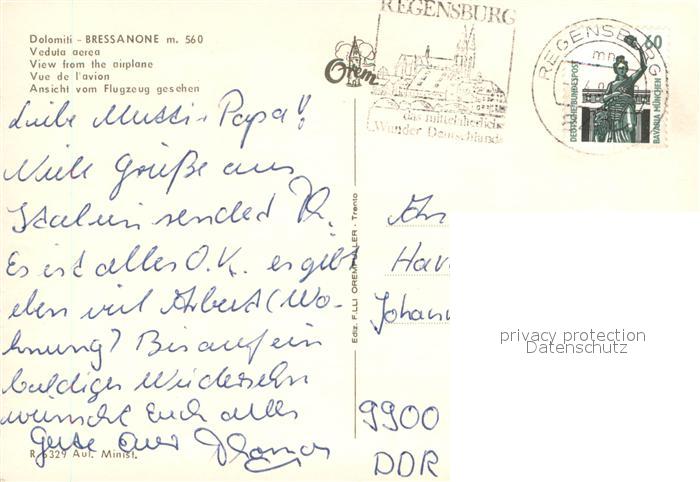 Dolomiti - BRESSANONE m. 560
Veduta aerea
View from the airplane
Vue de l'avion
Ansicht vom Flugzeug gesehen
Orem
REGENSBURG
das mittelalterliche
Wunder Deutschlands
REGENSBURG
mn
60
DEUTSCHE BUNDESPOST
BAVARIA MÜNCHEN
Liebe Mutti + Papa!
Viele Grüße aus
Italien sendet Th.
Es ist alles O.K. es gibt
eben viel Arbeit (Wo-
hnung) Bis auf ein
baldiges Wiedersehn
wünscht Euch alles
Gute Euer Thomas
Ediz. F.LLI OREMPULLER - Trento
Johann
9900
DDR
R. 6329 Aut. Minist.
privacy protection
Datenschutz